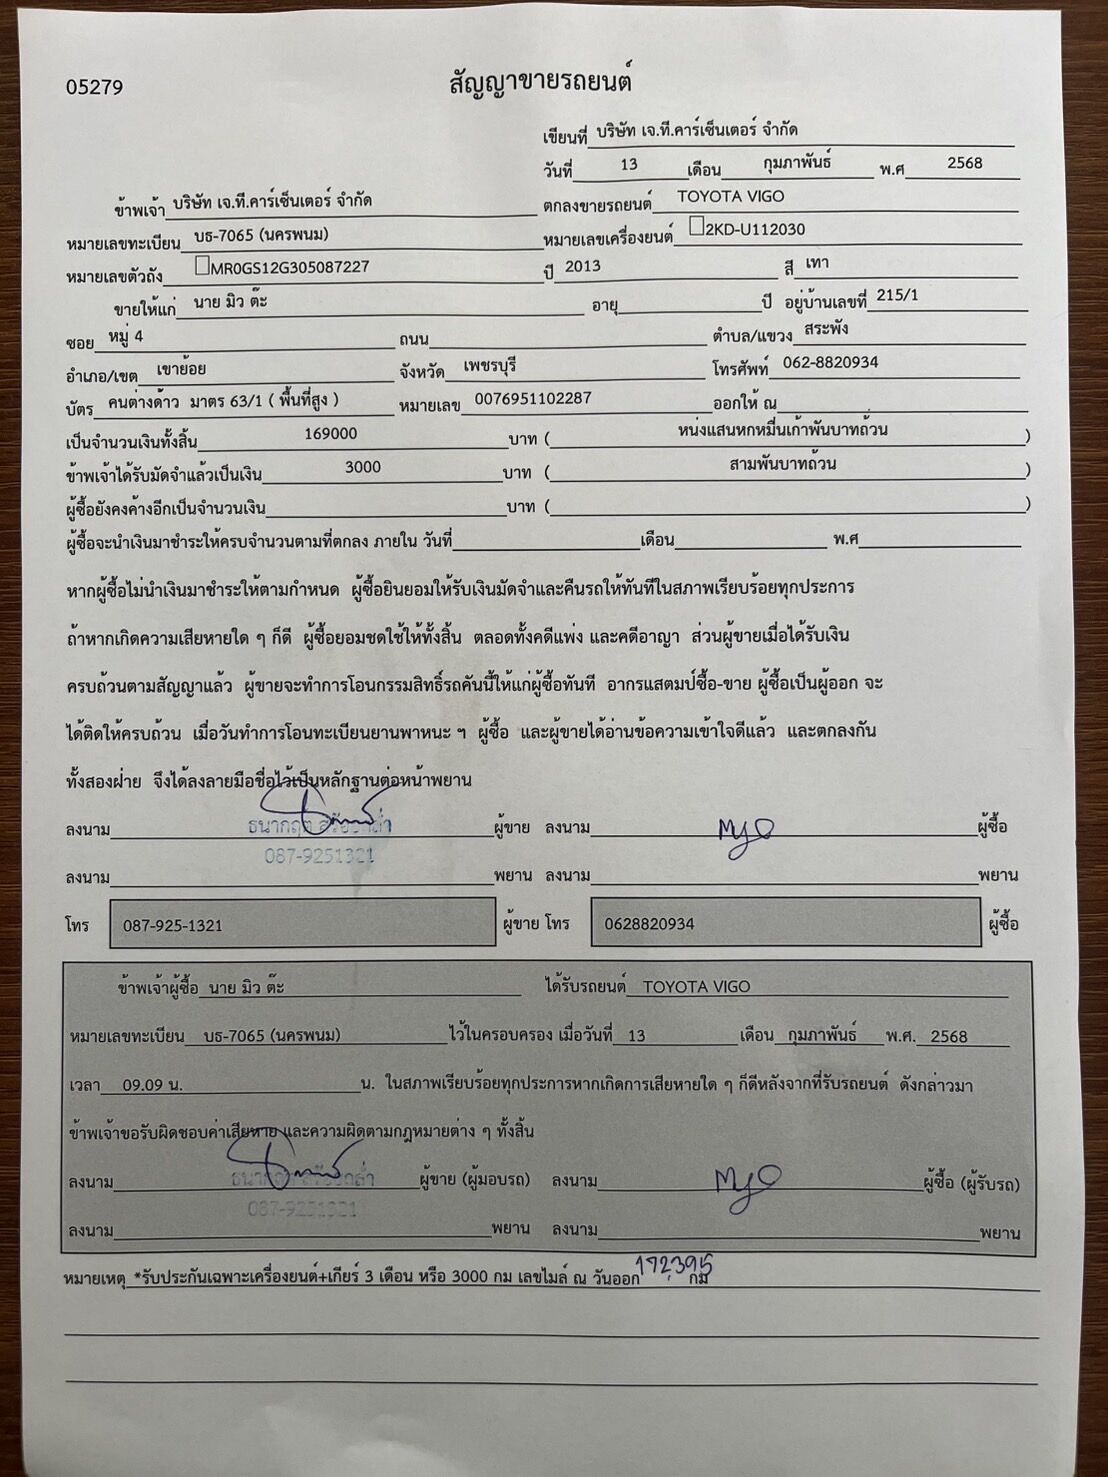 05279
สัญญาขายรถยนต์
เขียนที่ บริษัท เจ.ที.คาร์เซ็นเตอร์ จำกัด
วันที่ 13 เดือน กุมภาพันธ์ พ.ศ 2568
ข้าพเจ้า บริษัท เจ.ที.คาร์เซ็นเตอร์ จำกัด ตกลงขายรถยนต์ TOYOTA VIGO
หมายเลขทะเบียน บธ-7065 (นครพนม) หมายเลขเครื่องยนต์ 2KD-U112030
หมายเลขตัวถัง MR0GS12G305087227 ปี 2013 สี เทา
ขายให้แก่ นาย มิว ต๊ะ อายุ ปี อยู่บ้านเลขที่ 215/1
ซอย หมู่ 4 ถนน ตำบล/แขวง สระพัง
อำเภอ/เขต เขาย้อย จังหวัด เพชรบุรี โทรศัพท์ 062-8820934
บัตร คนต่างด้าว มาตร 63/1 ( พื้นที่สูง ) หมายเลข 0076951102287 ออกให้ ณ
เป็นจำนวนเงินทั้งสิ้น 169000 บาท ( หน่งแสนหกหมื่นเก้าพันบาทถ้วน )
ข้าพเจ้าได้รับมัดจำแล้วเป็นเงิน 3000 บาท ( สามพันบาทถ้วน )
ผู้ซื้อยังคงค้างอีกเป็นจำนวนเงิน บาท ( )
ผู้ซื้อจะนำเงินมาชำระให้ครบจำนวนตามที่ตกลง ภายใน วันที่ เดือน พ.ศ
หากผู้ซื้อไม่นำเงินมาชำระให้ตามกำหนด ผู้ซื้อยินยอมให้รับเงินมัดจำและคืนรถให้ทันทีในสภาพเรียบร้อยทุกประการ
ถ้าหากเกิดความเสียหายใด ๆ ก็ดี ผู้ซื้อยอมชดใช้ให้ทั้งสิ้น ตลอดทั้งคดีแพ่ง และคดีอาญา ส่วนผู้ขายเมื่อได้รับเงิน
ครบถ้วนตามสัญญาแล้ว ผู้ขายจะทำการโอนกรรมสิทธิ์รถคันนี้ให้แก่ผู้ซื้อทันที อากรแสตมป์ซื้อ-ขาย ผู้ซื้อเป็นผู้ออก จะ
ได้ติดให้ครบถ้วน เมื่อวันทำการโอนทะเบียนยานพาหนะ ฯ ผู้ซื้อ และผู้ขายได้อ่านข้อความเข้าใจดีแล้ว และตกลงกัน
ทั้งสองฝ่าย จึงได้ลงลายมือชื่อไว้เป็นหลักฐานต่อหน้าพยาน
ลงนาม ผู้ขาย ลงนาม myo ผู้ซื้อ
087-9251321
ลงนาม พยาน ลงนาม พยาน
โทร 087-925-1321 ผู้ขาย โทร 0628820934 ผู้ซื้อ
ข้าพเจ้าผู้ซื้อ นาย มิว ต๊ะ ได้รับรถยนต์ TOYOTA VIGO
หมายเลขทะเบียน บธ-7065 (นครพนม) ไว้ในครอบครอง เมื่อวันที่ 13 เดือน กุมภาพันธ์ พ.ศ. 2568
เวลา 09.09 น. น. ในสภาพเรียบร้อยทุกประการหากเกิดการเสียหายใด ๆ ก็ดีหลังจากที่รับรถยนต์ ดังกล่าวมา
ข้าพเจ้าขอรับผิดชอบค่าเสียหาย และความผิดตามกฎหมายต่าง ๆ ทั้งสิ้น
ลงนาม ผู้ขาย (ผู้มอบรถ) ลงนาม myo ผู้ซื้อ (ผู้รับรถ)
087-9251321
ลงนาม พยาน ลงนาม พยาน
หมายเหตุ *รับประกันเฉพาะเครื่องยนต์+เกียร์ 3 เดือน หรือ 3000 กม เลขไมล์ ณ วันออก 172,395 กม